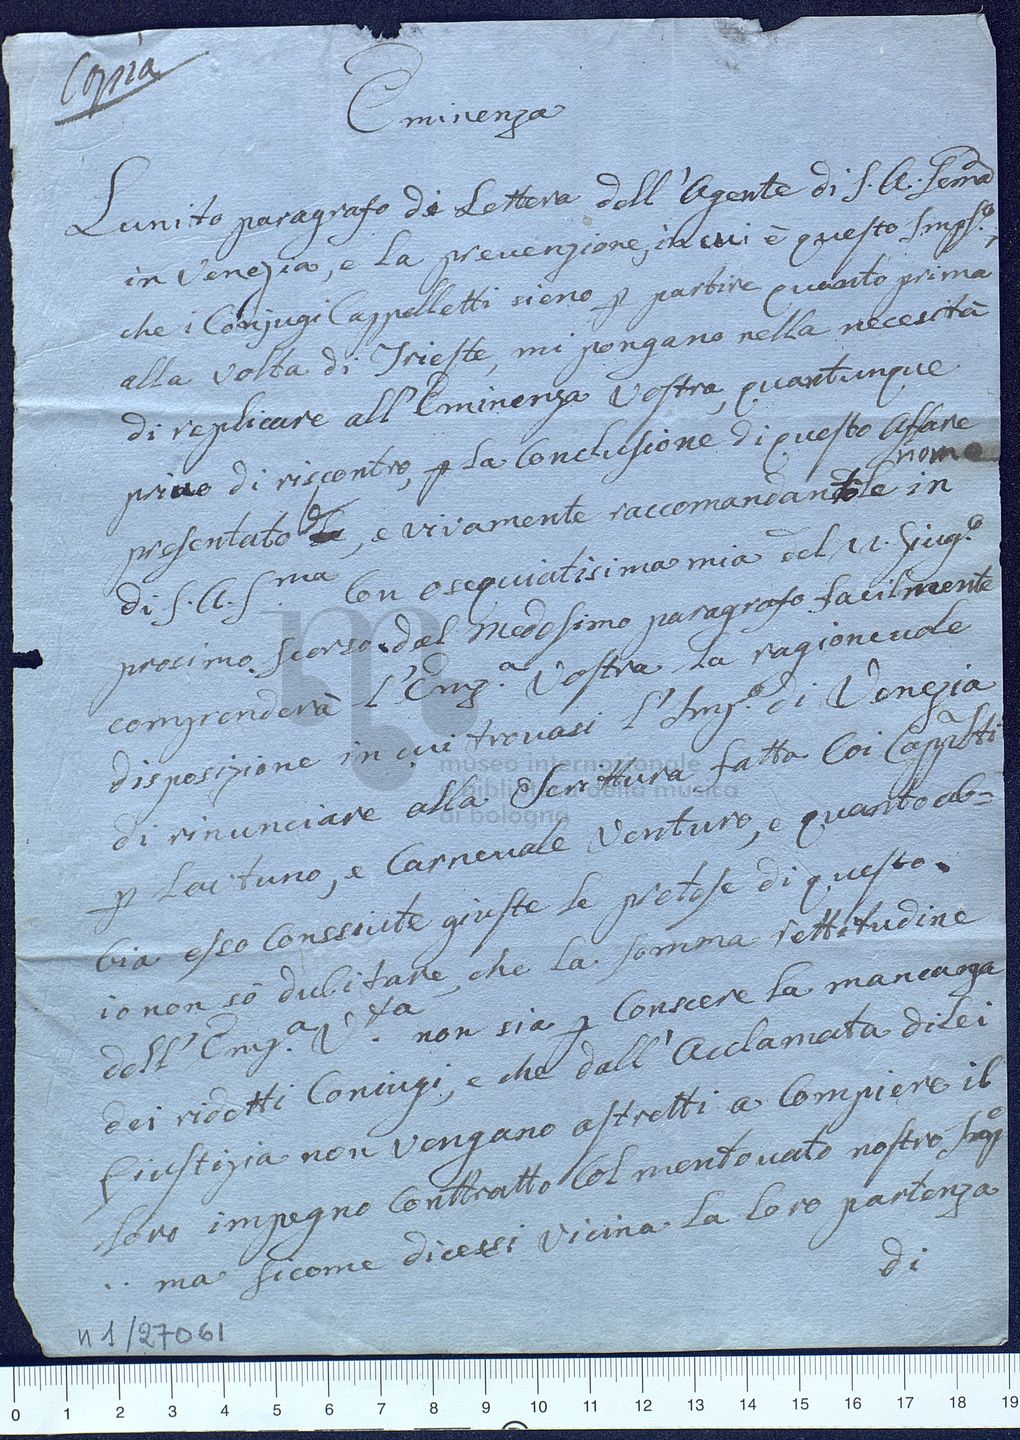 Copia
Eminenza
L'unito paragrafo di Lettera dell'Agente di S. A. Sema
in Venezia, e la prevenzione, in cui è questo Imps.o,
che i Conjugi Cappelletti sieno p partire quanto prima
alla volta di Trieste, mi pongano nella necesità
di replicare all'Eminenza Vostra, quantunque
privo di riscontro, p la Conclusione di questo Affare
presentato, e vivamente raccomandatole in nome
di S. A. S.ma Con osequiatisima mia del Giug.o
prosimo scorso. del Medesimo paragrafo facilmente
comprenderà l'Emz.a Vostra la ragionevole
disposizione in cui trovasi l'Imp.o di Venezia
di rinunciare alla Scrittura fatta Coi Capp.lti
p l'Autuno, e Carnevale Venturo, e quanto ab=
bia esso Conosciute giuste le pretese di questo.
io non sò dubitare, che la somma rettitudine
dell'Emz.a V.ra non sia p Conoscere la mancanza
dei ridetti Coniugi, e che dall'Acclamata di lei
Giustizia non vengano astretti a Compiere il
loro impegno Conttratto Col mentovato nostro Imp.o
.. ma sicome dicesi vicina la loro partenza
di
n 1/27061
museo internazionale
e biblioteca della musica
di bologna
0 1 2 3 4 5 6 7 8 9 10 11 12 13 14 15 16 17 18 19